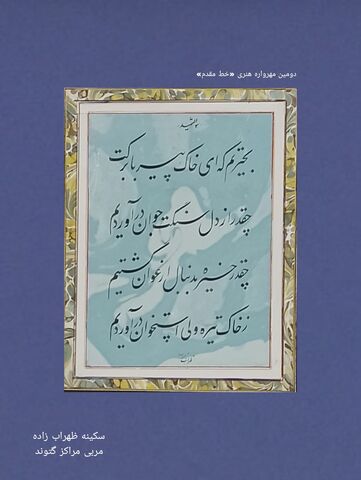 دومین مهرواره هنری «خط مقدم»
بخر تیم که ای خاک پیر بابرکت
چقدر از دل سنگت جوان درآوردیم
چقدر خیره به دنبال ارغوان گشتیم
زخاک تیره ولی استخوان درآوردیم
سکینه ظهراب زاده
مربی مراکز گتوند